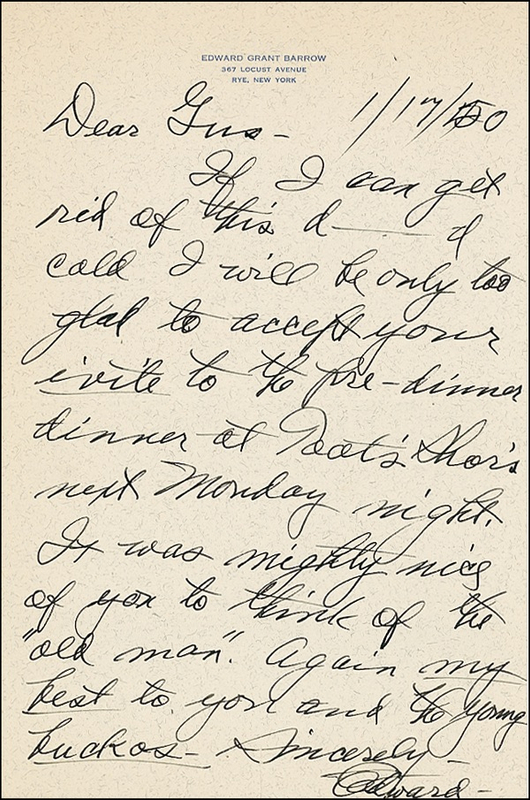 EDWARD GRANT BARROW
367 LOCUST AVENUE
RYE, NEW YORK
Dear Gus- 1/17/50
If I can get
rid of this d——d
cold I will be only too
glad to accept your
invite to the pre-dinner
dinner at Toots Shor's
next Monday night.
It was mighty nice
of you to think of the
"old man". Again my
best to you and the young
buckos- Sincerely-
Edward-